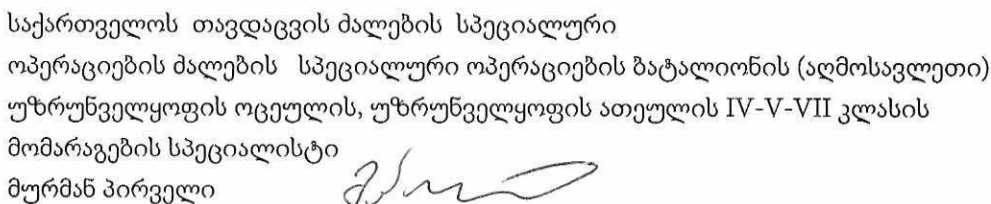 საქართველოს თავდაცვის ძალების სპეციალური
ოპერაციების ძალების სპეციალური ოპერაციების ბატალიონის (აღმოსავლეთი)
უზრუნველყოფის ოცეულის, უზრუნველყოფის ათეულის IV-V-VII კლასის
მომარაგების სპეციალისტი
მურმან პირველი